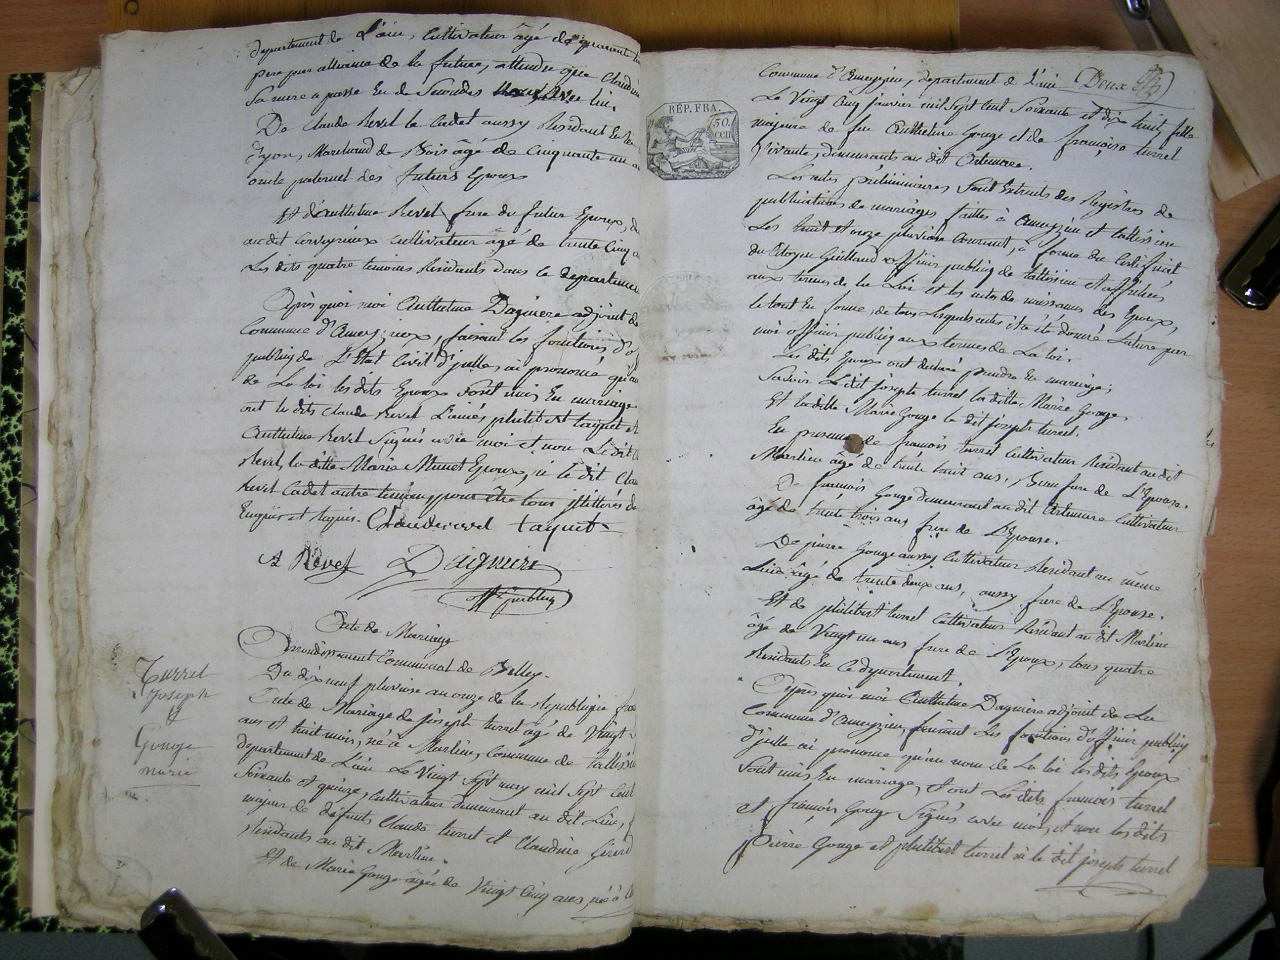 département de L'ain, Cultivateur âgé de
pere par alliance de la future, attendu que Claudine
Sa mere a passé En de Secondes avec lui.
De Claude Revel le Cadet aussy Résidant
Lyon, Marchand de Bois âgé de Cinquante un
oncle paternel des futurs Epoux
Et d'Anthelme Revel frere du futur Epoux,
au dit Cerveyrieux Cultivateur âgé de trente Cinq
Les dits quatre temoins Résidants dans le departement
Après quoi moi Anthelme Daguere adjoint de
Commune d'Ameyzieux, faisant les fonctions d'
public de L'Etat Civil d'ycelle, ai prononcé qu'au
de La loi les dits Epoux Sont unis En mariage
ont les dits Claude Revel L'ainé, philibert taquet et
Anthelme Revel Signés avec moi et non Le dit
Revel, la ditte Marie Epoux, ni le dit
Revel Cadet autre temoin, pour être tous illitérés de
Enquis et requis. Claude revel taquet
A Revel Daguere
off. public
Acte de Mariage
Arrondissement Communal de Belley.
Du dix neuf pluviose an onze de la République
Acte de Mariage de joseph turrel âgé de Vingt
ans et huit mois, né à Marlieu, Commune de tallissieu
departement de L'ain Le Vingt Sept may mil Sept Cent
Soixante et quinze, Cultivateur demeurant au dit Lieu,
majeur de défunts Claude turrel et Claudine
Résidants au dit Marlieu.
Et de Marie Gouge âgée de Vingt Cinq ans, née à
Turrel
Joseph
&
Gouge
marie
REP. FRA.
50.
Commune d'Ameyzieu, departement de L'ain Doux
Le Vingt Cinq janvier mil Sept Cent Soixante et dix huit, fille
majeure de feu Anthelme Gouge et de françoise turrel
Vivante, demeurants au dit
Les actes préliminaires Sont Extraits des Registres de
publications de mariages faittes à Ameyzieu et tallissieu
Les huit et onze pluviose Courant, à forme du Certificat
du Citoyen Guillaud officier public de tallissieu et affichées
aux termes de la Loi et les actes de naissance des Epoux,
le tout En forme, de tous lesquels actes il a été donné Lecture par
moi officier public aux termes de La loi.
Les dits Epoux ont déclaré prendre En mariage,
Savoir Le dit joseph turrel la ditte Marie Gouge,
Et la ditte Marie Gouge le dit joseph turrel.
En présence de françois turrel Cultivateur Résidant au dit
Marlieu âgé de trente huit ans, Beau frere de L'Epouse.
De françois Gouge demeurant au dit Cultivateur
âgé de trente trois ans frere de L'Epouse.
De pierre Gouge aussy Cultivateur Résidant au même
Lieu âgé de trente deux ans, aussy frere de L'Epouse.
Et de philibert turrel Cultivateur Résidant au dit Marlieu
âgé de Vingt un ans frere de L'Epoux, tous quatre
Résidants En Ce departement.
Après quoi moi Anthelme Daguere adjoint de La
Commune d'Ameyzieu, faisant Les fonctions d'officier public
d'ycelle ai prononcé qu'au nom de La loi les dits Epoux
Sont unis En mariage, et ont Les dits françois turrel
et françois Gouge Signés avec moi, et non les dits
Pierre Gouge et philibert turrel ni le dit joseph turrel